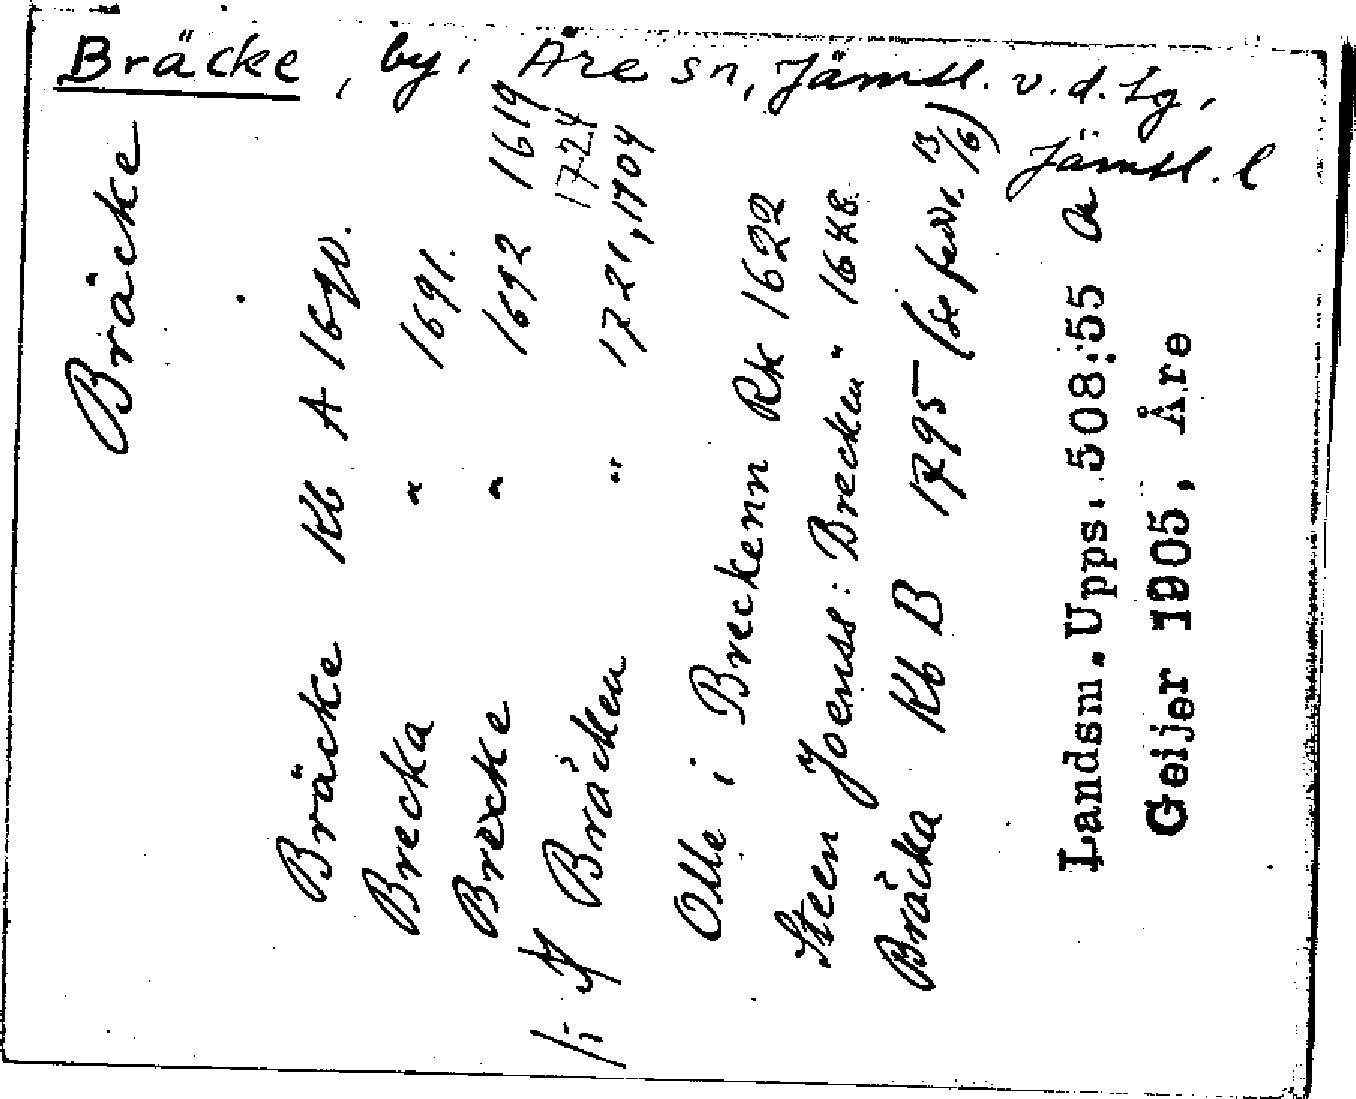 Bräcke, by, Åre sn, Jämtl. v. d. lg,
Jämtl. l
Bräcke
Bräcke Kb A 1690.
Brecka " 1691.
Brecke " 1692 1619
1724
/i Bräcken " 1721, 1704
Olle i Breckenn Rk 1622
Steen Joenss: Brecken " 1648.
Bräcka Kb B 1795 (se 13/6)
Landsm. Upps. 508:55 a
Geijer 1905, Åre